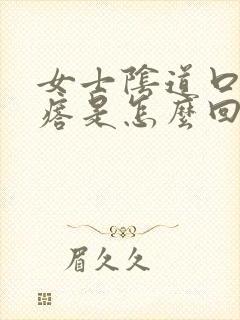 女士陰道口
痞是怎麼回
眉久久